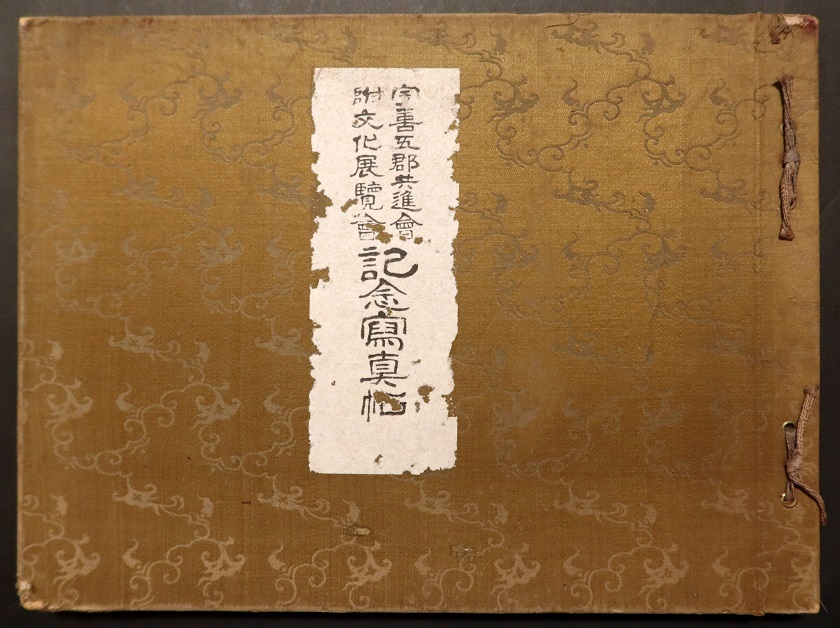 善五郡共進會
附文化展覽會
記念寫真帖